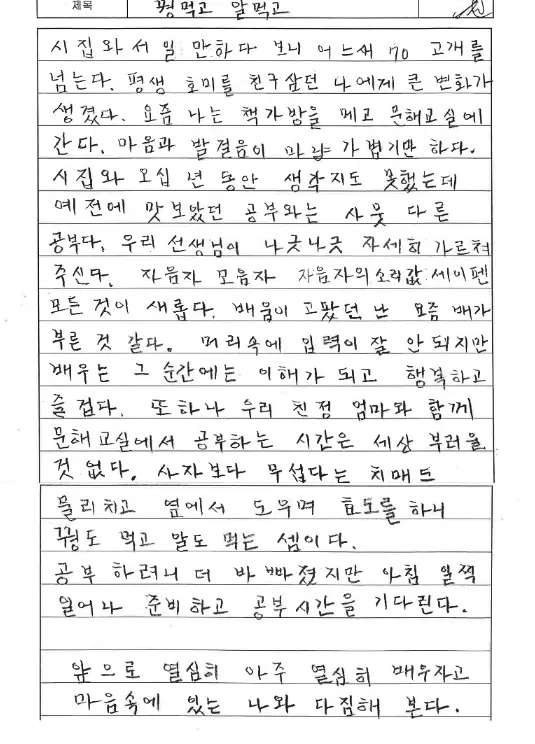 제목 꿩먹고 알먹고
시집와서 일만하다 보니 어느새 70 고개를
넘는다. 평생 호미를 친구삼던 나에게 큰 변화가
생겼다. 요즘 나는 책가방을 메고 문해교실에
간다. 마음과 발걸음이 마냥 가볍기만 하다.
시집와 오십 년 동안 생각지도 못했는데
예전에 맛보았던 공부와는 사뭇 다른
공부다. 우리 선생님이 나긋나긋 자세히 가르쳐
주신다. 자음자 모음자 자음자의 소리값 세이펜
모든 것이 새롭다. 배움이 고팠던 난 요즘 배가
부른 것 같다. 머리속에 입력이 잘 안 되지만
배우는 그 순간에는 이해가 되고 행복하고
즐겁다. 또하나 우리 친정 엄마와 함께
문해교실에서 공부하는 시간은 세상 부러울
것 없다. 사자보다 무섭다는 치매도
물리치고 옆에서 도우며 효도를 하니
꿩도 먹고 알도 먹는 셈이다.
공부 하려니 더 바빠졌지만 아침 일찍
일어나 준비하고 공부시간을 기다린다.
앞으로 열심히 아주 열심히 배우자고
마음속에 있는 나와 다짐해 본다.